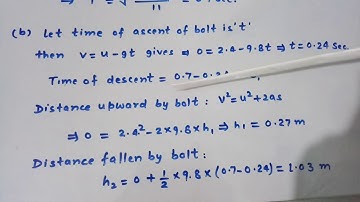 (b) Let time of ascent of bolt is 't'
then v = u - gt gives ⇒ 0 = 2.4 - 9.8t ⇒ t = 0.24 sec.
Time of descent = 0.7 - 0.24
Distance upward by bolt : v² = u² + 2as
⇒ 0 = 2.4² - 2×9.8×h₁ ⇒ h₁ = 0.27 m
Distance fallen by bolt :
h₂ = 0 + 1/2 × 9.8 × (0.7 - 0.24) = 1.03 m